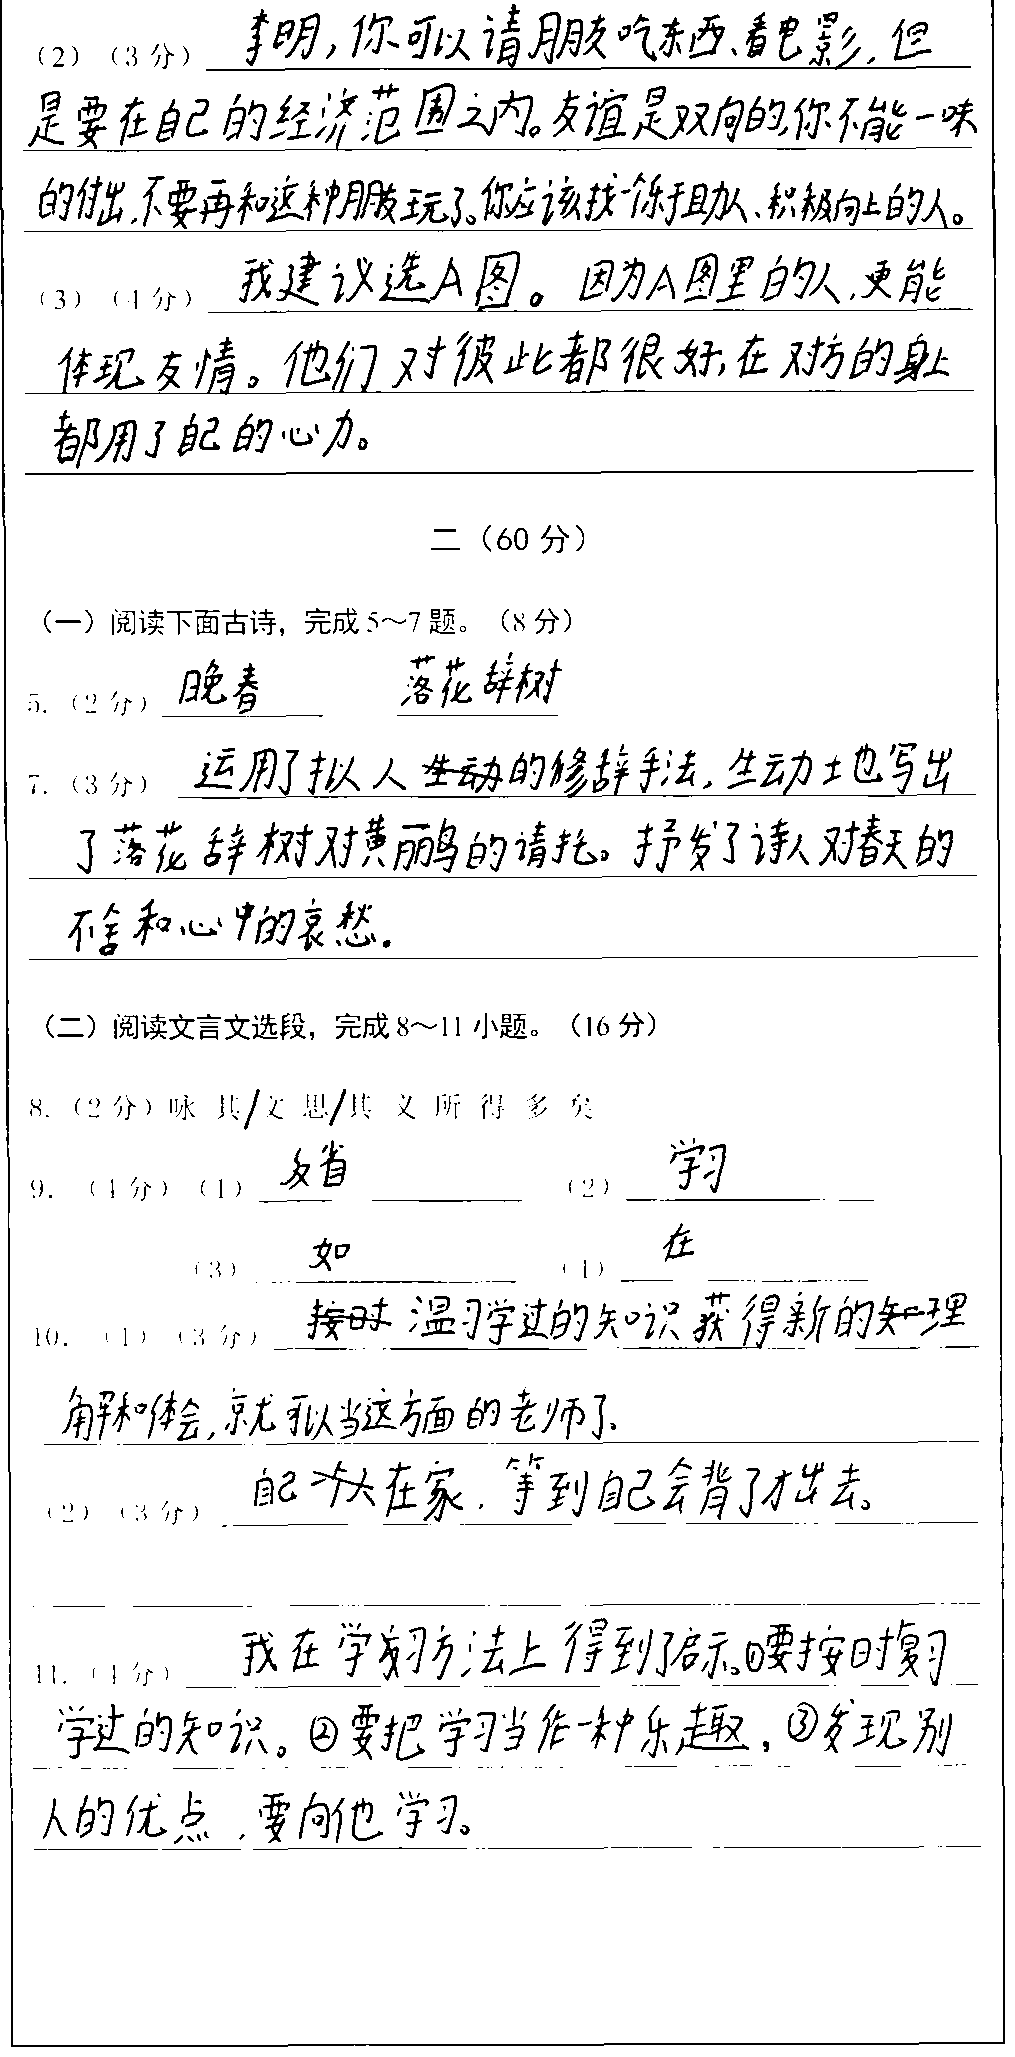 （2）（3分）李明,你可以请朋友吃东西、看电影,但
是要在自己的经济范围之内。友谊是双向的,你不能一味
的付出,不要再和这种朋友玩了。你应该找一个乐于助人、积极向上的人。
（3）（4分）我建议选A图。因为A图里的人,更能
体现友情。他们对彼此都很好,在对方的身上
都用了自己的心力。
二（60分）
（一）阅读下面古诗，完成5～7题。（8分）
5.（2分）晚春 落花辞树
7.（3分）运用了拟人生动的修辞手法,生动土也写出
了落花辞树对黄鹂鸟的请托。抒发了诗人对春天的
不舍和心中的哀愁.
（二）阅读文言文选段，完成8～11小题。（16分）
8.（2分）咏其/文思/其义所得多矣
9.（4分）（1）反省 （2）学习
（3）如 （4）在
10.（1）（3分）按时 温习学过的知识获得新的知理
解和体会,就可以当这方面的老师了.
（2）（3分）自己在家,等到自己会背了才出去。
11.（4分）我在学习方法上得到了启示。①要按时复习
学过的知识。②要把学习当作一种乐趣,③发现别
人的优点,要向他学习。